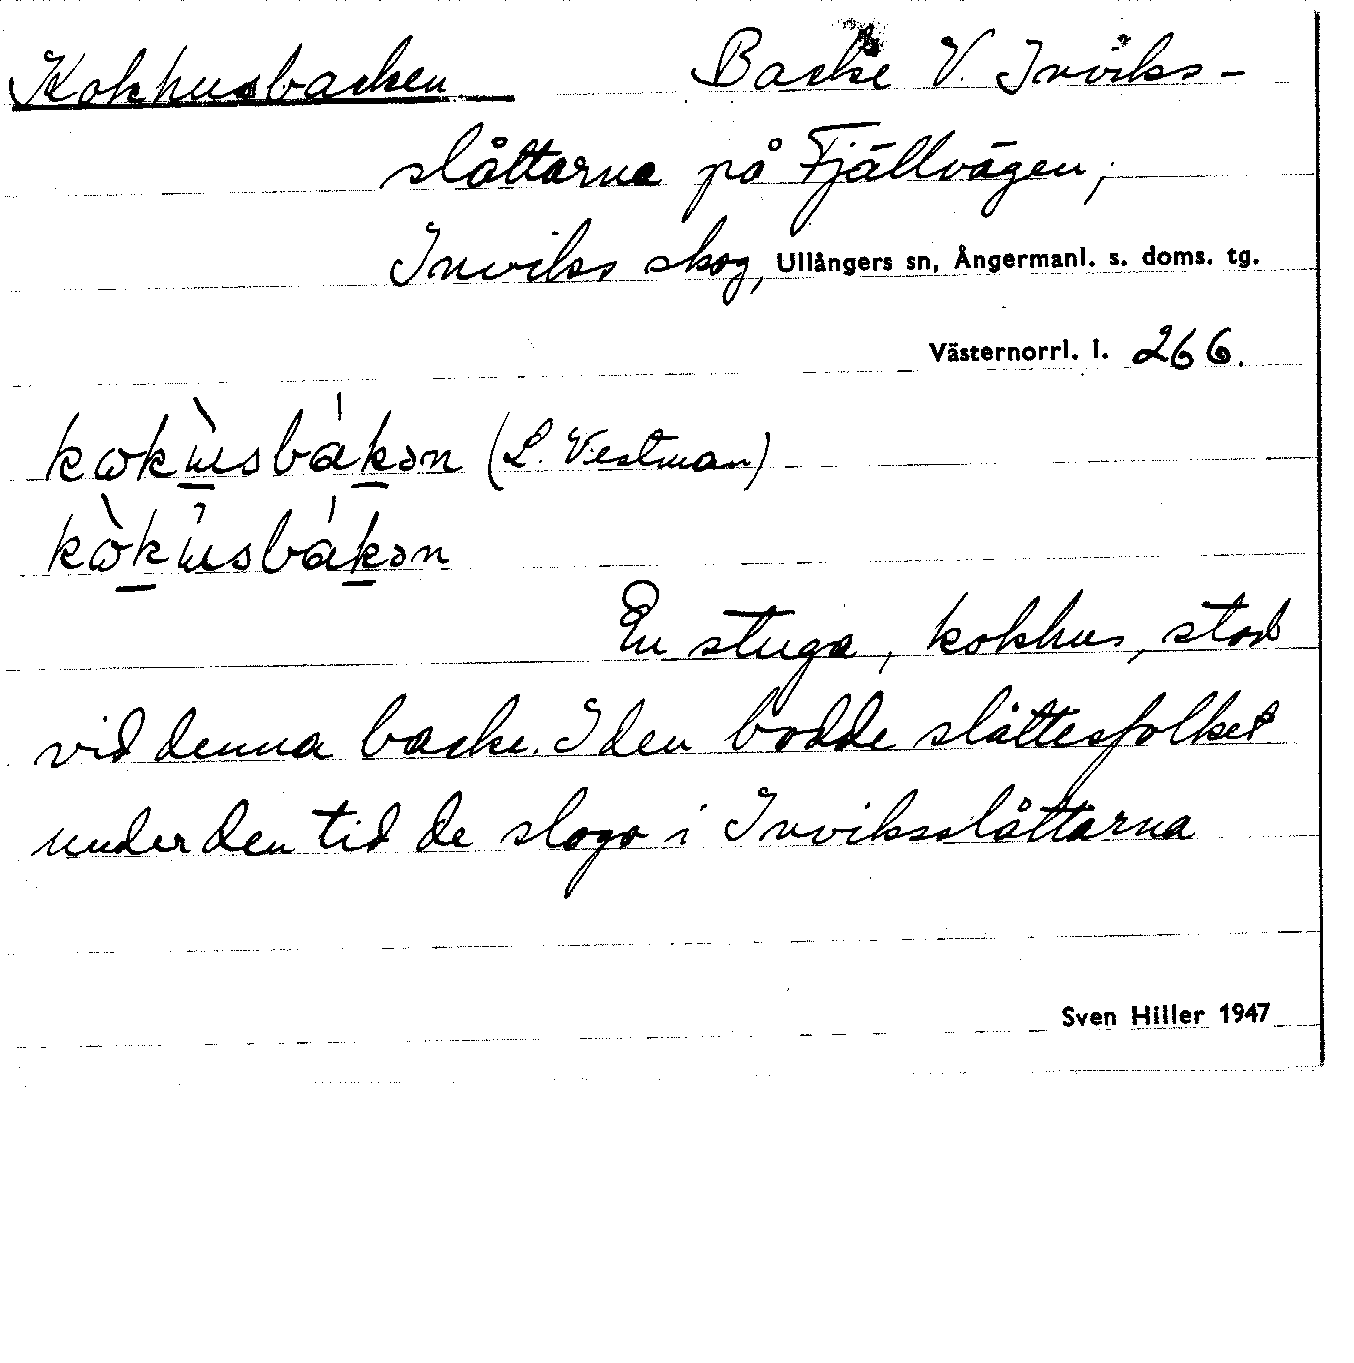 Kokhusbacken Backe V. Inviks-
slåttarna på Fjällvägen,
Inviks skog, Ullångers sn, Ångermanl. s. doms. tg.
Västernorrl. l. 266.
(L. Vestman)
En stuga, kokhus, stod
vid denna backe. I den bodde slåttesfolket
under den tid de slogo i Inviksslåttarna
Sven Hiller 1947